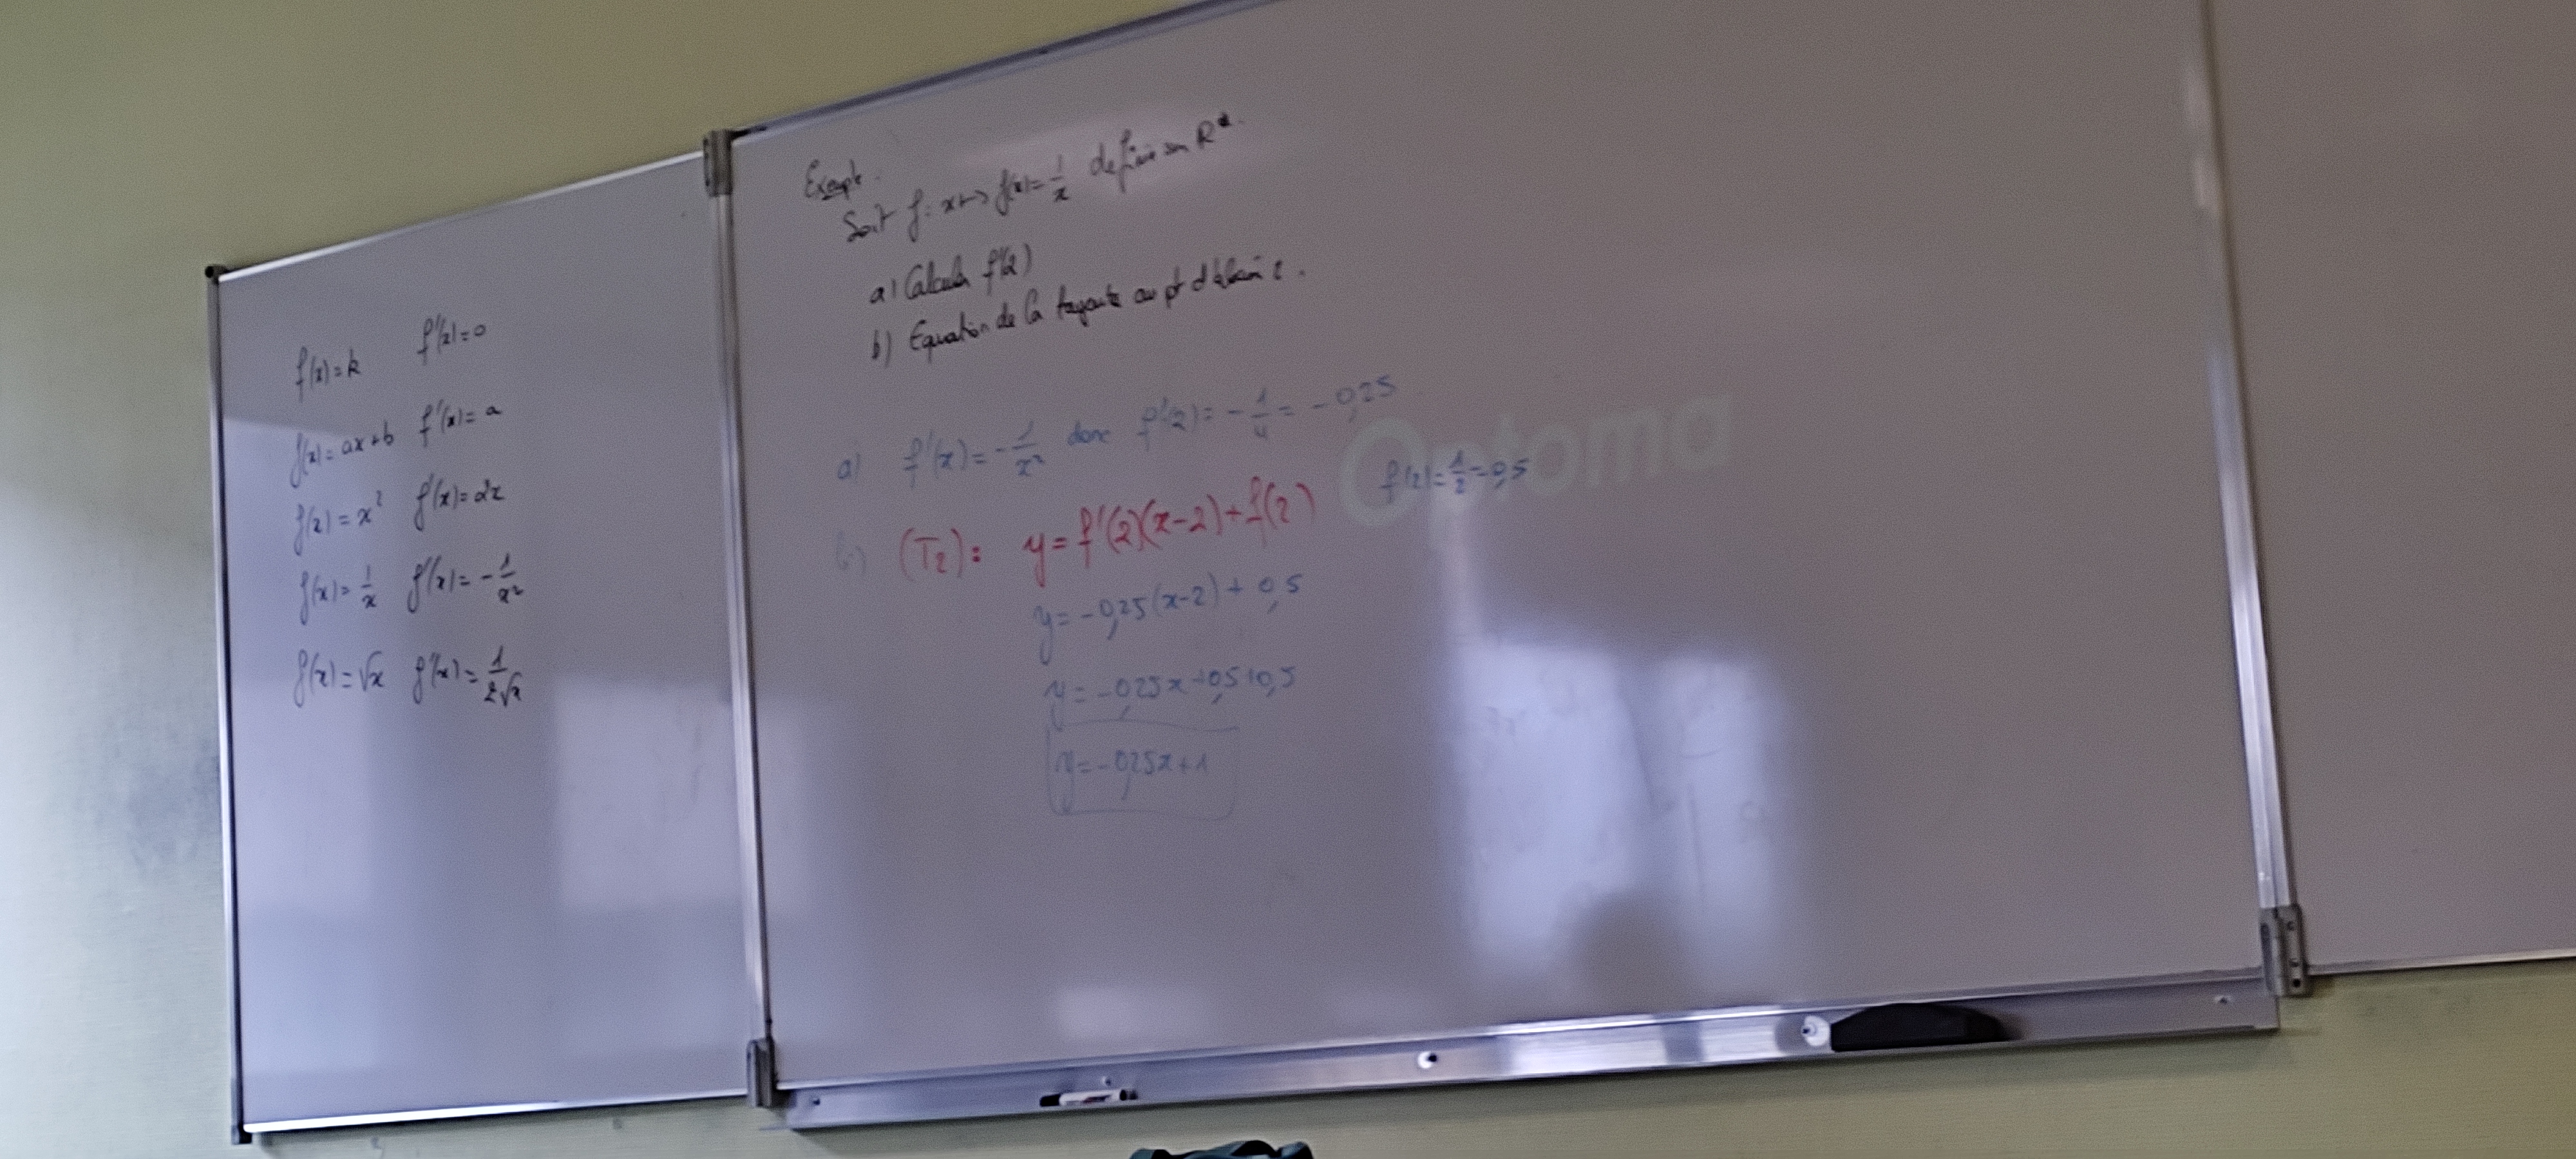 f(x) = k f'(x) = 0
f(x) = ax+b f'(x) = a
f(x) = x² f'(x) = 2x
f(x) = 1/x f'(x) = -1/x²
f(x) = √x f'(x) = 1/2√x
Exemple.
Soit f: x ↦ f(x) = 1/x définie sur R*.
a) Calculer f'(2)
b) Equation de la tangente au pt d'abscisse 2.
a) f'(x) = -1/x² donc f'(2) = -1/4 = -0,25
f(2) = 1/2 = 0,5
b) (T₂): y = f'(2)(x-2)+f(2)
y = -0,25(x-2) + 0,5
y = -0,25x+0,5+0,5
y = -0,25x+1
Optoma